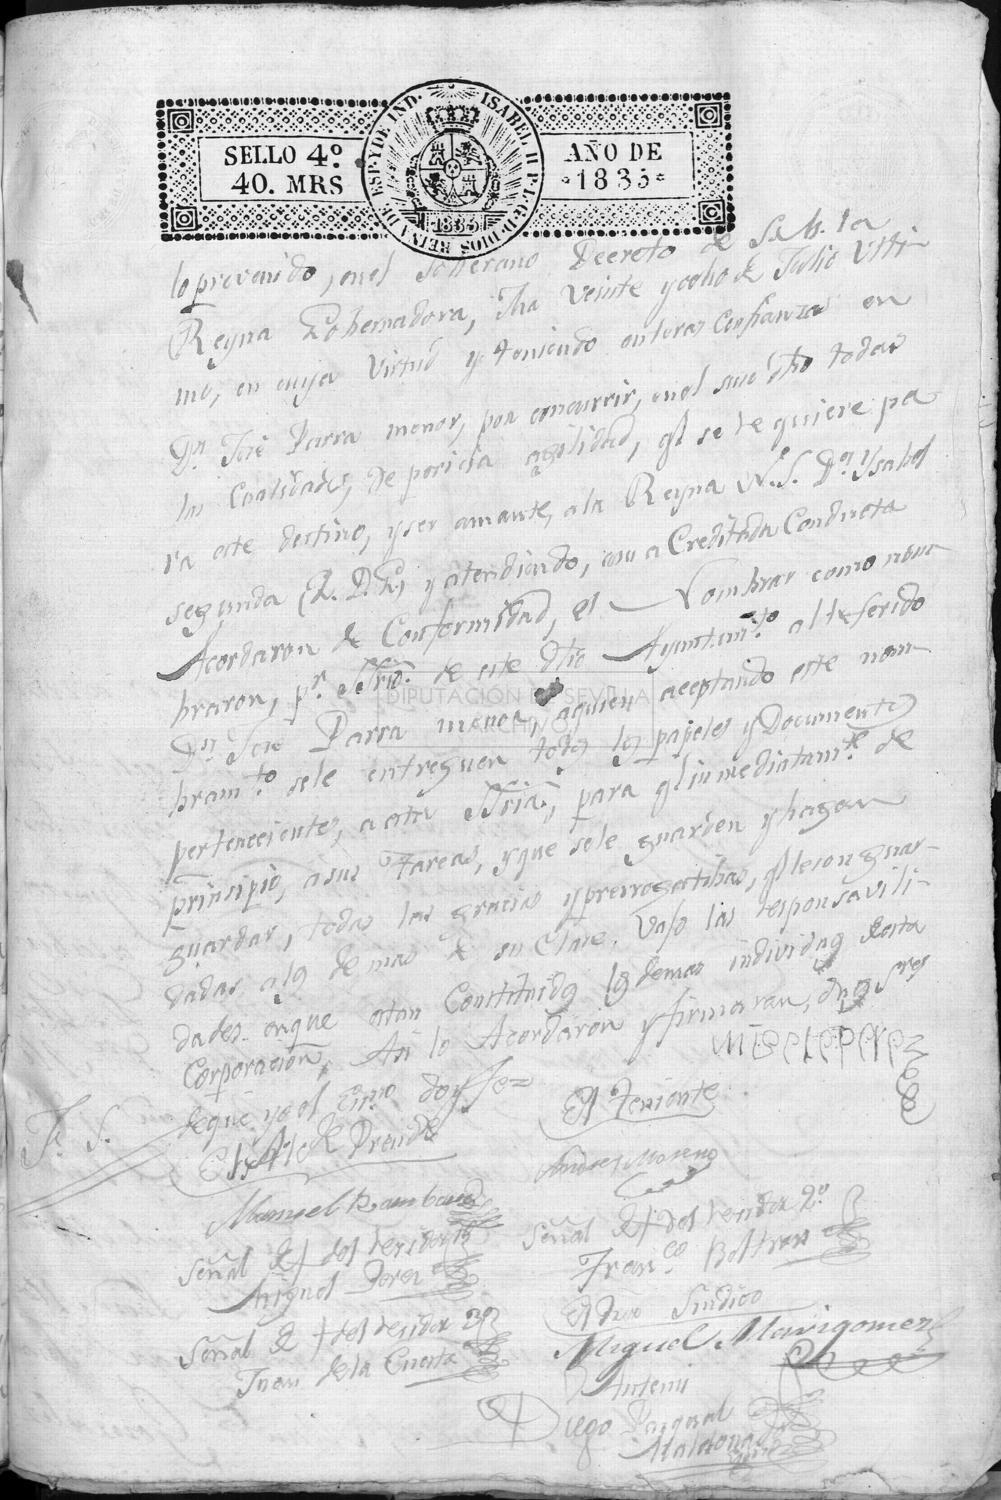 SELLO 4º
40. MRS
ISABEL II P. L. G. D DIOS REINA DE ESP. Y DE IND.
1835
AÑO DE
1835
lo prevenido, en el soberano Decreto de S. M. la
Reyna Gobernadora, fha veinte y ocho de Julio Ulti-
mo, en cuya Virtud y teniendo enteras confianzas en
Dn. José Parra menor, por concurrir, en el suso dho todas
las Cualidades, de pericia agilidad, ql se requiere pa
ra este destino, y ser amante, a la Reyna N. S. Dª. Ysabel
segunda (Q. D. G.) y atendiendo, a su a Creditada Conducta
Acordaron de Conformidad, el Nombrar como nom
braron, pr. Srio. de este dho Ayuntamto. al referido
Dn. José Parra menor, a quien aceptando este nom
bramto. se le entreguen todos los papeles y Documentos
pertenecientes, a esta Sria., para ql inmediatamte. de
principio, a sus Tareas, y que se le guarden y hagan
guardar, todas las gracias y prerrogatibas, ql le son guar-
dadas a los demas de su Clase. Vajo las responsavili-
dades. en que estan Constituidos los demas individuos desta
Corporacion, Asi lo Acordaron y firmaran, dhos Sres
de que yo el Esno. doy fe=
DIPUTACIÓN DE SEVILLA
ARCHIVO
El Alce. Preside
El Teniente
Manuel Rambaud
Andres Moreno
Señal de + del rexidor 1º
Miguel Perez
Señal de + del rexidor 2º
Franco. Beltran
Señal de + del rexidor 3º
Juan de la Cuesta
El Sindico
Miguel Marigomez
Antemi
Diego Pasqual
Maldonado